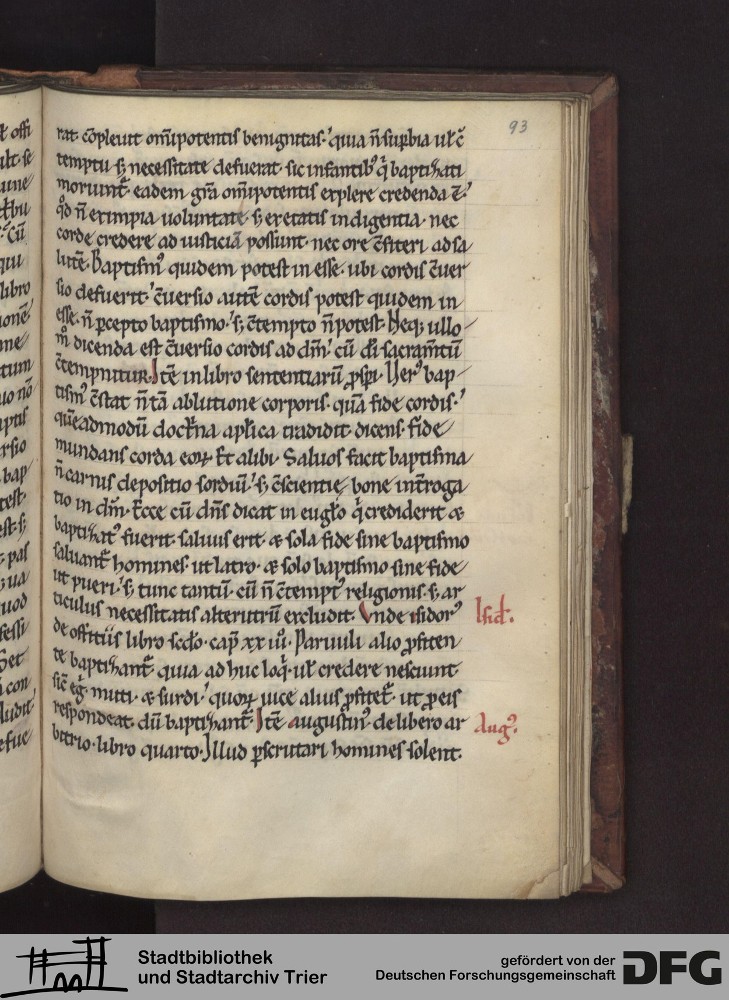 93
rat. c̄pleuit om̄ipotentis benignitas.' quia n̄ supbia ul' c̄
temptu s; necessitate defuerat. sic infantib; q̄ baptizati
moriunt̄. eadem gr̄a om̄ipotentis explere credenda ē.'
qd̄ n̄ ex impia uoluntate s; ex etatis indigentia. nec
corde credere ad iusticiā possunt. nec ore c̄fiteri ad sa
lutē. Baptism' quidem potest in esse. ubi cordis c̄uer
sio defuerit.' c̄uersio autē cordis potest quidem in
esse. n̄ pcepto baptismo.' s; c̄tempto n̄ potest. Neq; ullo
m̊ dicenda est c̄uersio cordis ad dm̄.' cū di sacramtū
c̄tempnitur. Itē in libro sententiarū pspi. Uer' bap
tism' c̄stat n̄ tā ablutione corporis. quā fide cordis.'
quēadmodū doctna aplica tradidit dicens. fide
mundans corda eoꝝ. Et alibi. Saluos facit baptisma
n̄ carnis depositio sordiū.' s; c̄scientie bone int̄roga
tio in dm̄. Ecce cū dn̄s dicat in eugło q̄ crediderit &
baptizat' fuerit saluus erit. & sola fide sine baptismo
saluant̄ homines ut latro. & solo baptismo sine fide
ut pueri.' s; tunc tantū. cū n̄ c̄tempt' religionis. s; ar
ticulus necessitatis alterutrū excludit. Unde isidor'
Isid'.
de offitiis libro scdo. cap xx iiij. Paruuli alio pfiten
te baptizant̄. quia ad huc loq̄. ul' credere nesciunt.
sic̄ eg̊. muti. & surdi.' quoꝝ uice alius pfitet̄. ut p eis
respondeat. dū baptizant̄. Itē augustin' de libero ar
Aug'.
bitrio. libro quarto. Illud pscrutari homines solent.
Stadtbibliothek
und Stadtarchiv Trier
gefördert von der
Deutschen Forschungsgemeinschaft
DFG